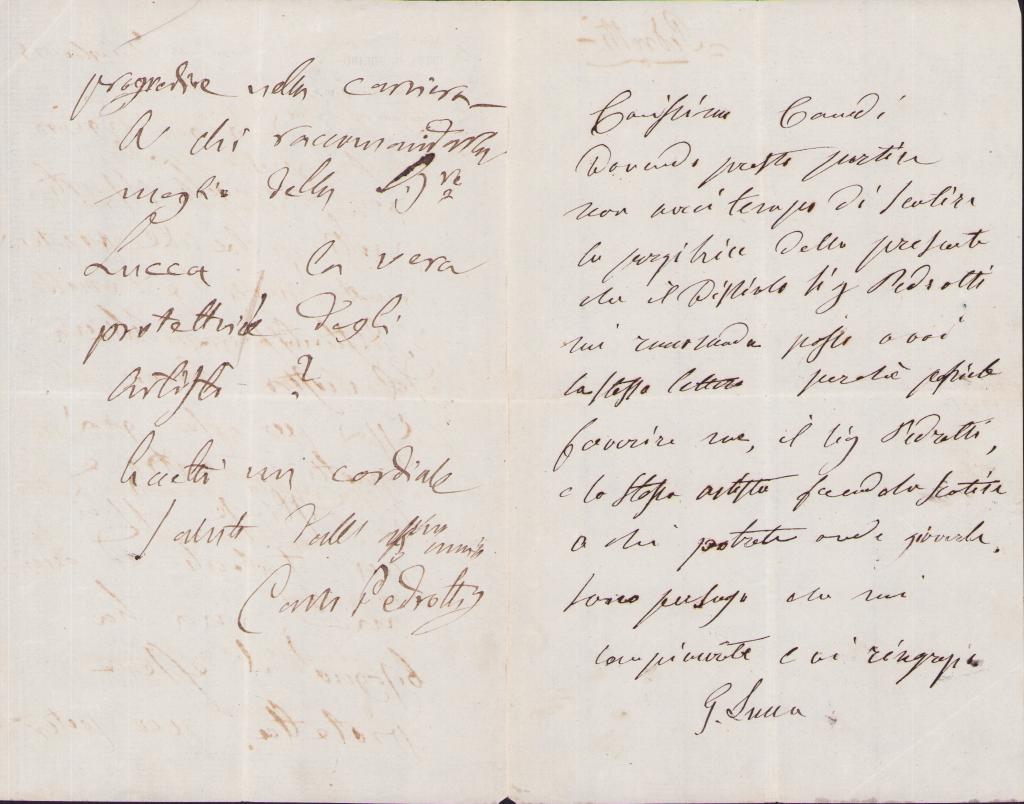 progredire nella carriera
A chi raccomandarla
meglio della Sig.ra
Lucca la vera
protettrice degli
artisti ?
Accetti un cordiale
saluto dall' aff.mo amico
Carlo Pedrotti
Carissimo
Dovendo presto partire
non avrei tempo di sentire
la porgitrice della presente
che il Distinto Sig Pedrotti
mi raccomanda posso a voi
la stessa lettera perchè possiate
favorire me, il Sig Pedrotti,
e la stessa artista facendola sentire
a chi potrete onde giovarle.
Sono persuasa che mi
compiacerete e vi ringrazio
G. Lucca